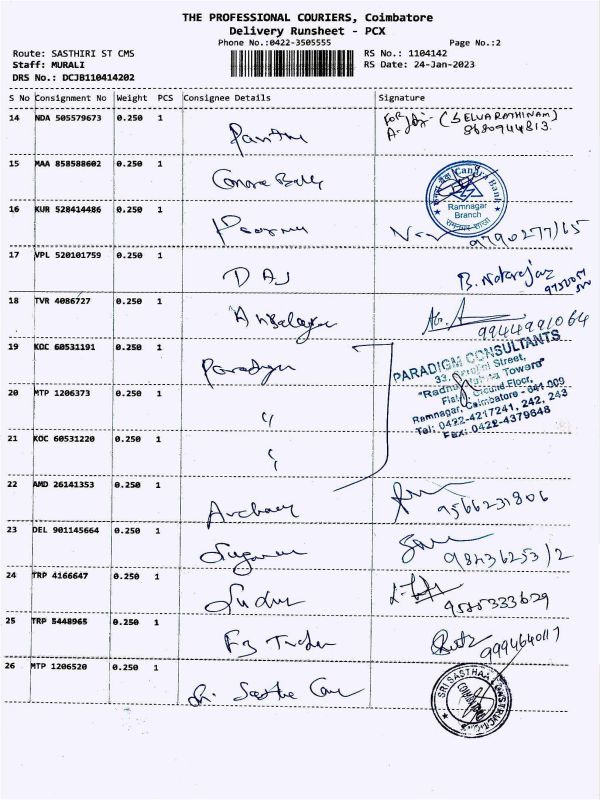 THE PROFESSIONAL COURIERS, Coimbatore
Delivery Runsheet - PCX
Phone No.:0422-3505555
Page No.:2
Route: SASTHIRI ST CMS
RS No.: 1104142
Staff: MURALI
RS Date: 24-Jan-2023
DRS No.: DCJB110414202
S No Consignment No Weight PCS Consignee Details Signature
14 NDA 505579673 0.250 1 For (SELVARATHINAM)
8680944813
15 MAA 858588602 0.250 1 Canara Bank
Canara Bank
Ramnagar
Branch
16 KUR 528414486 0.250 1
17 VPL 520101759 0.250 1 DAJ B. Natarajan
18 TVR 4086727 0.250 1 9944991064
19 KOC 60531191 0.250 1 Paradigm
PARADIGM CONSULTANTS
33, Street,
Ground Floor,
Ramnagar, Coimbatore - 641 009
Tel: 0422-4217241, 242, 243
Fax: 0422-4379648
20 MTP 1206373 0.250 1 "
21 KOC 60531220 0.250 1 "
22 AMD 26141353 0.250 1 9566231806
23 DEL 901145664 0.250 1
24 TRP 4166647 0.250 1
25 TRP 5448965 0.250 1
26 MTP 1206520 0.250 1
SRI SASTHAA CONSTRUCTIONS